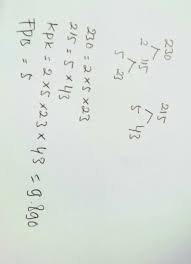 230
2 115
5 23
215
5 43
230 = 2 x 5 x 23
215 = 5 x 43
KPK = 2 x 5 x 23 x 43 = 9.890
FPB = 5